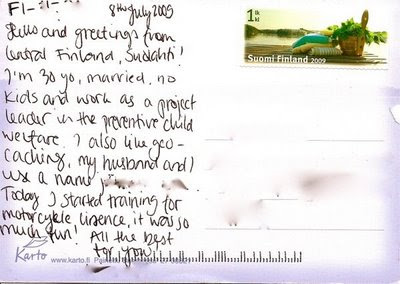 FI-
8th July 2009
Hello and greetings from
Central Finland, Suolahti!
I'm 30 yo, married, no
kids and work as a project
leader in the preventive child
welfare. I also like geo-
caching, my husband and I
use a name
Today I started training for
motorcycle lisence, it was so
much fun! All the best
for you!
1 lk
kl
Suomi Finland 2009
Karto
www.karto.fi